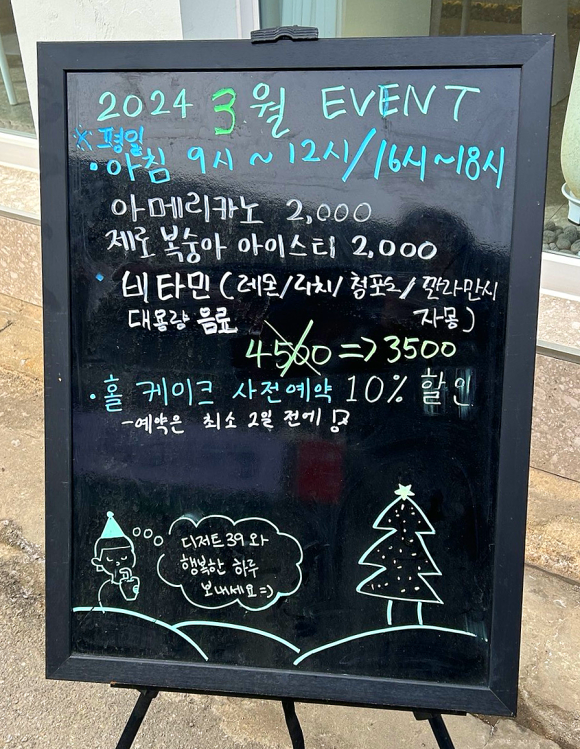 2024 3월 EVENT
※ 평일
• 아침 9시 ~ 12시/16시~18시
아메리카노 2,000
제로 복숭아 아이스티 2,000
• 비타민 (레몬/리치/청포도/깔라만시
대용량 음료 자몽)
4500 => 3500
• 홀 케이크 사전예약 10% 할인
- 예약은 최소 2일 전에!
디저트39와
행복한 하루
보내세요 =)